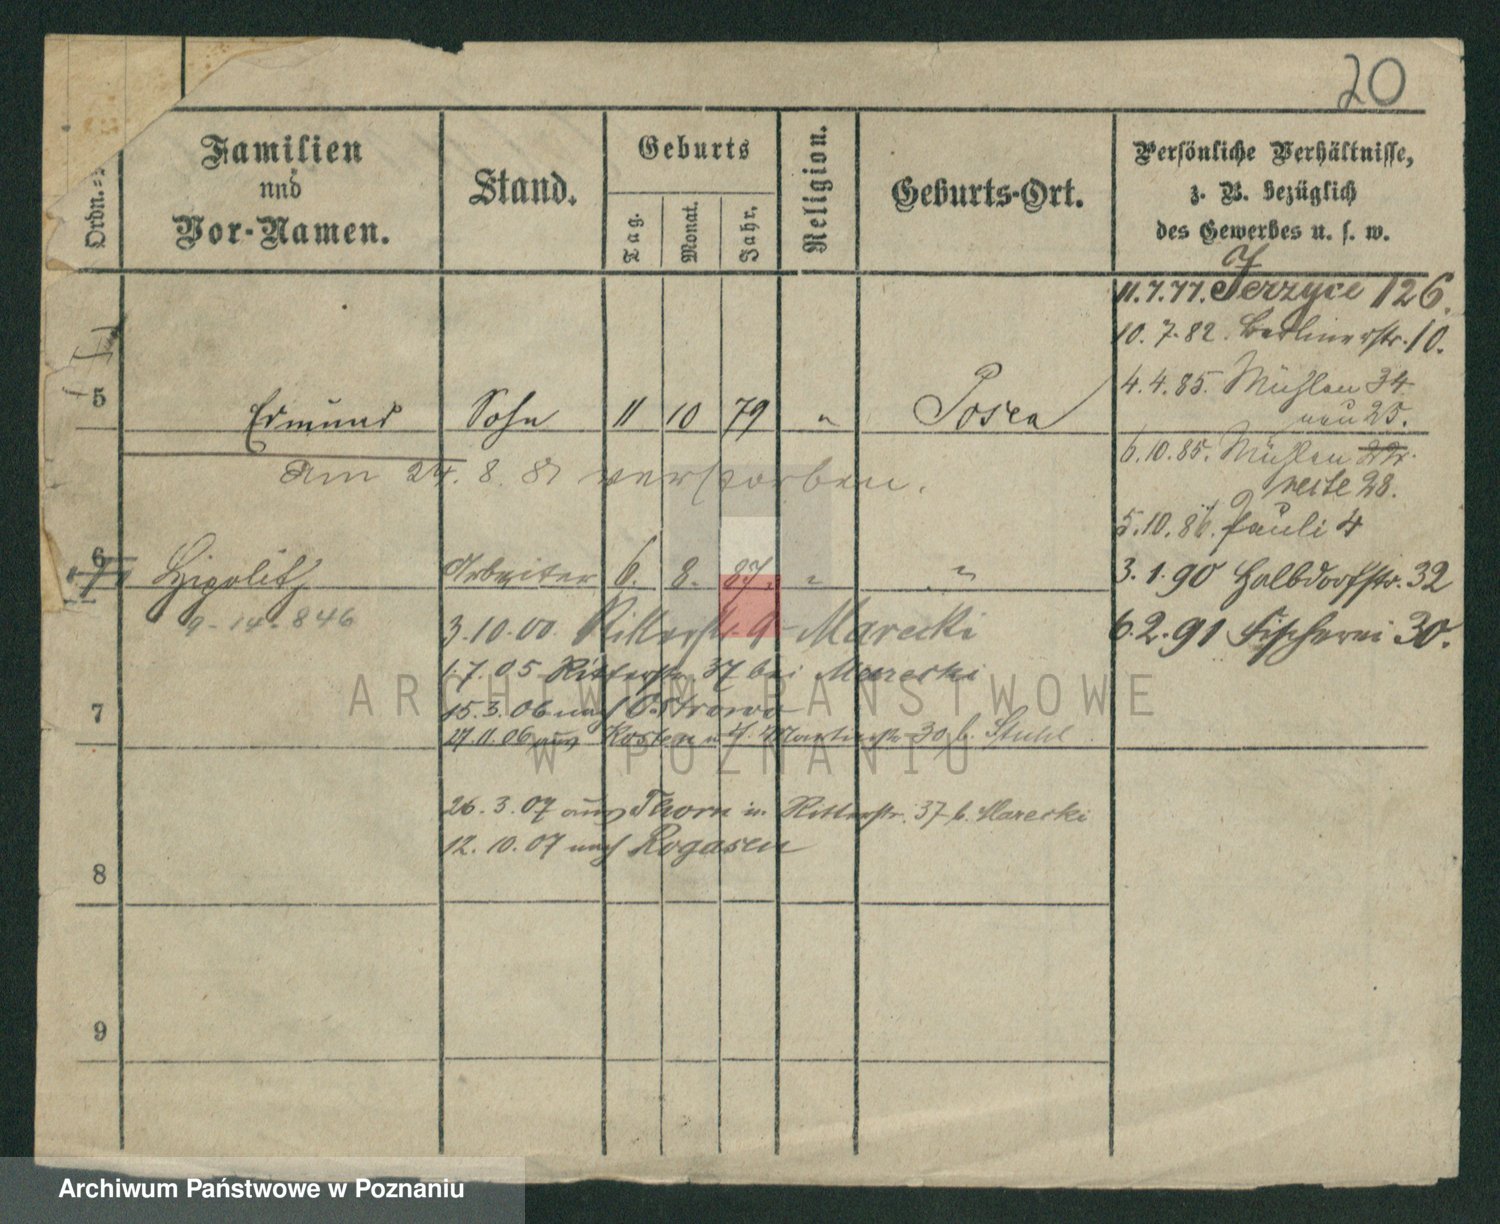 20
Familien
und
Vor-Namen.
Stand.
Geburts
Tag.
Monat.
Jahr.
Religion.
Geburts-Ort.
Persönliche Verhältnisse,
z. B. bezüglich
des Gewerbes u. s. w.
Ordn.
11.7.77. Jerzyce 126.
10.7.82. Berlinerstr. 10.
4.4.85. Mühlen 34
neu 25.
5 Edmund Sohn 11 10 79 " Posen
6.10.85. Mühlen
28.
am 24. 8. 81 verstorben.
5.10.86. Pauli 4
6 Hipolit Arbeiter 6. 8. 87. " "
3.1.90 Halbdorfstr. 32
9-14-846
3.10.00. Ritterstr. 9 Marecki
6.2.91 Fischerei 30.
1.7.05 Ritterstr. 37 bei Marecki
7
15.3.06 nach Ostrowo
27.11.06 aus Kosten Martinstr 30 b. Stuhl
26.3.07 aus Thorn in Ritterstr. 37 b. Marecki
12.10.07 nach Rogasen
8
9
ARCHIWUM PAŃSTWOWE
W POZNANIU
Archiwum Państwowe w Poznaniu